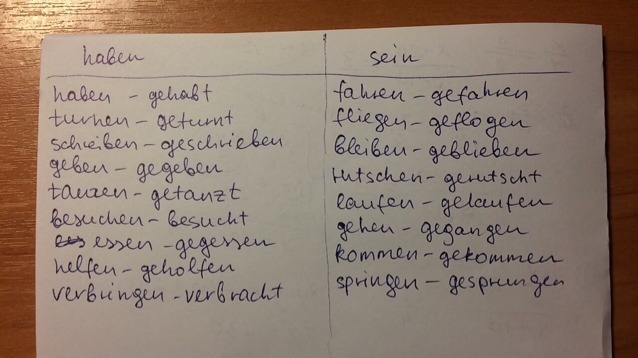 haben sein
haben - gehabt fahren - gefahren
turnen - geturnt fliegen - geflogen
schreiben - geschrieben bleiben - geblieben
geben - gegeben rutschen - gerutscht
tanzen - getanzt laufen - gelaufen
besuchen - besucht gehen - gegangen
essen - gegessen kommen - gekommen
helfen - geholfen springen - gesprungen
verbringen - verbracht